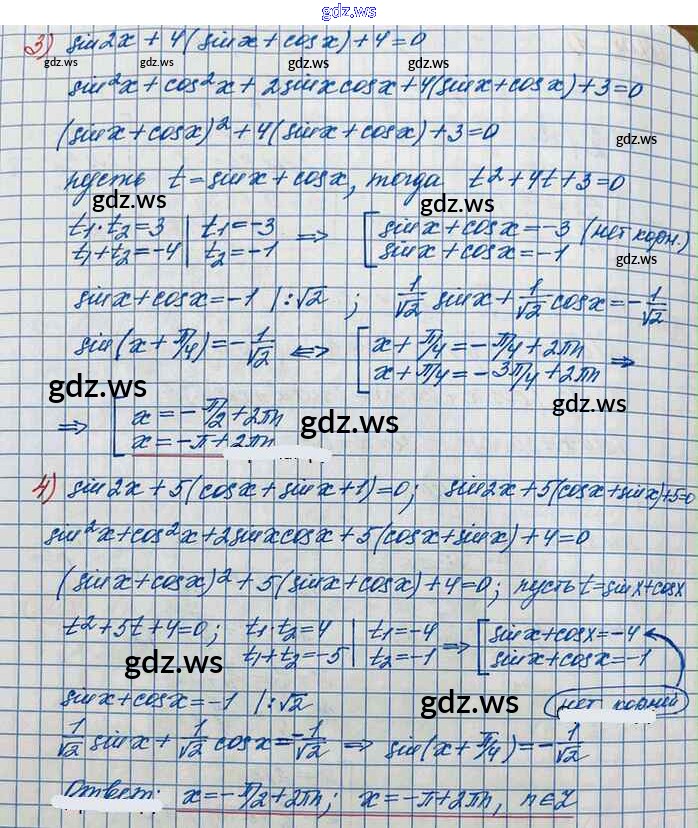 gdz.ws
3) sin2x + 4(sinx + cosx) + 4 = 0
gdz.ws gdz.ws gdz.ws gdz.ws
sin²x + cos²x + 2sinxcosx + 4(sinx + cosx) + 3 = 0
(sinx + cosx)² + 4(sinx + cosx) + 3 = 0
gdz.ws
пусть t = sinx + cosx, тогда t² + 4t + 3 = 0
gdz.ws gdz.ws
t₁·t₂ = 3 | t₁ = -3 ⇒ [ sinx + cosx = -3 (нет корн.)
t₁ + t₂ = -4 | t₂ = -1 [ sinx + cosx = -1
gdz.ws
sinx + cosx = -1 |:√2 ; 1/√2 sinx + 1/√2 cosx = -1/√2
sin(x + π/4) = -1/√2 ⇔ [ x + π/4 = -π/4 + 2πn
[ x + π/4 = -3π/4 + 2πn ⇒
gdz.ws gdz.ws
⇒ [ x = -π/2 + 2πn
[ x = -π + 2πn
gdz.ws
4) sin2x + 5(cosx + sinx + 1) = 0; sin2x + 5(cosx + sinx) + 5 = 0
sin²x + cos²x + 2sinxcosx + 5(cosx + sinx) + 4 = 0
(sinx + cosx)² + 5(sinx + cosx) + 4 = 0; пусть t = sinx + cosx
t² + 5t + 4 = 0; t₁·t₂ = 4 | t₁ = -4 ⇒ [ sinx + cosx = -4
t₁ + t₂ = -5 | t₂ = -1 [ sinx + cosx = -1
gdz.ws
sinx + cosx = -1 |:√2 нет корней
gdz.ws
1/√2 sinx + 1/√2 cosx = -1/√2 ⇒ sin(x + π/4) = -1/√2
Ответ: x = -π/2 + 2πn; x = -π + 2πn, n∈Z